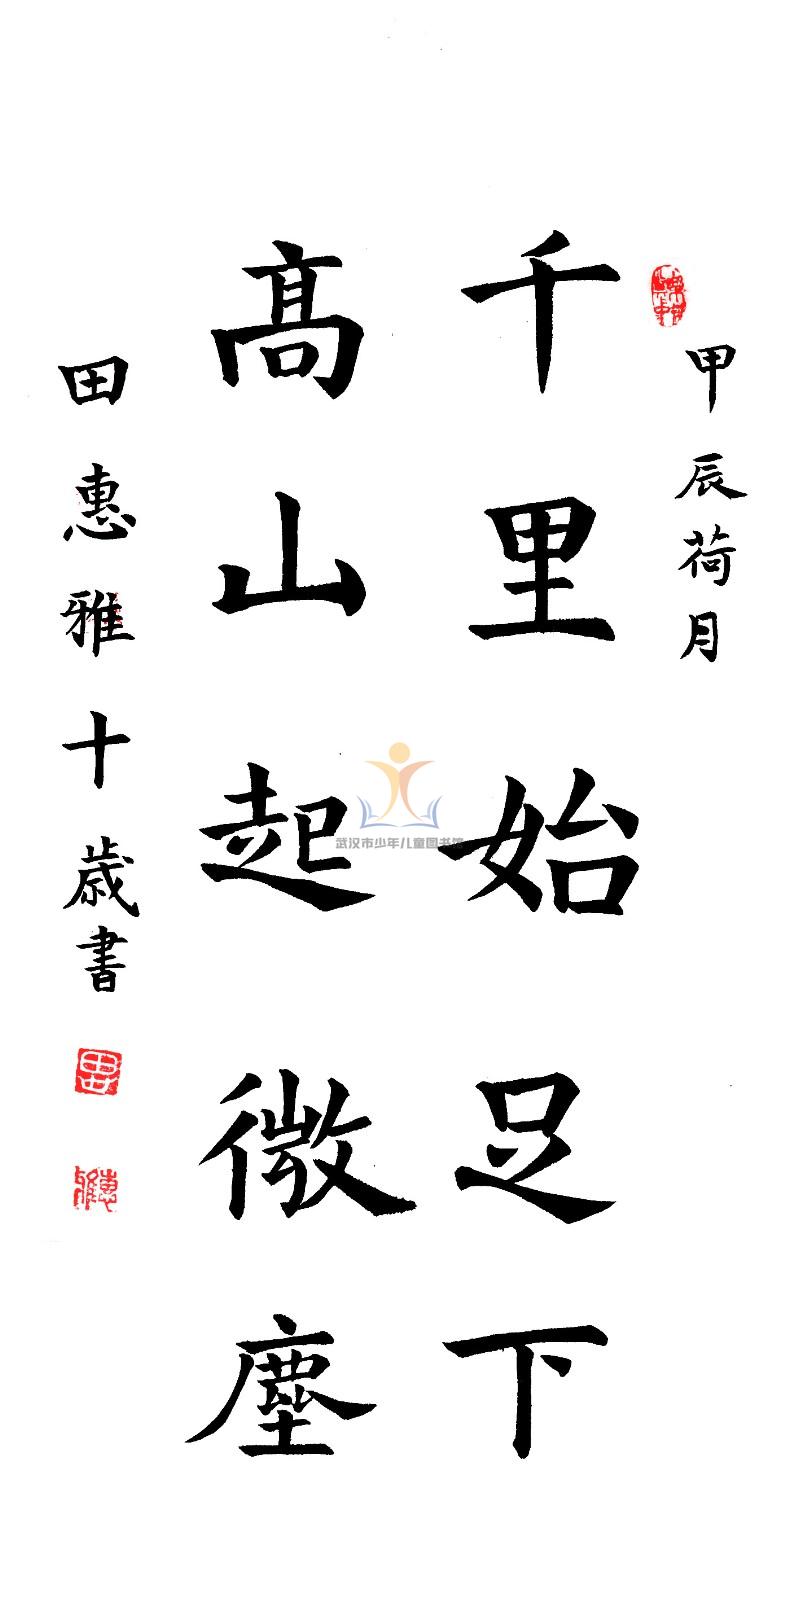 甲辰荷月
千里始足下
高山起微塵
田惠雅十歲書
武汉市少年儿童图书馆